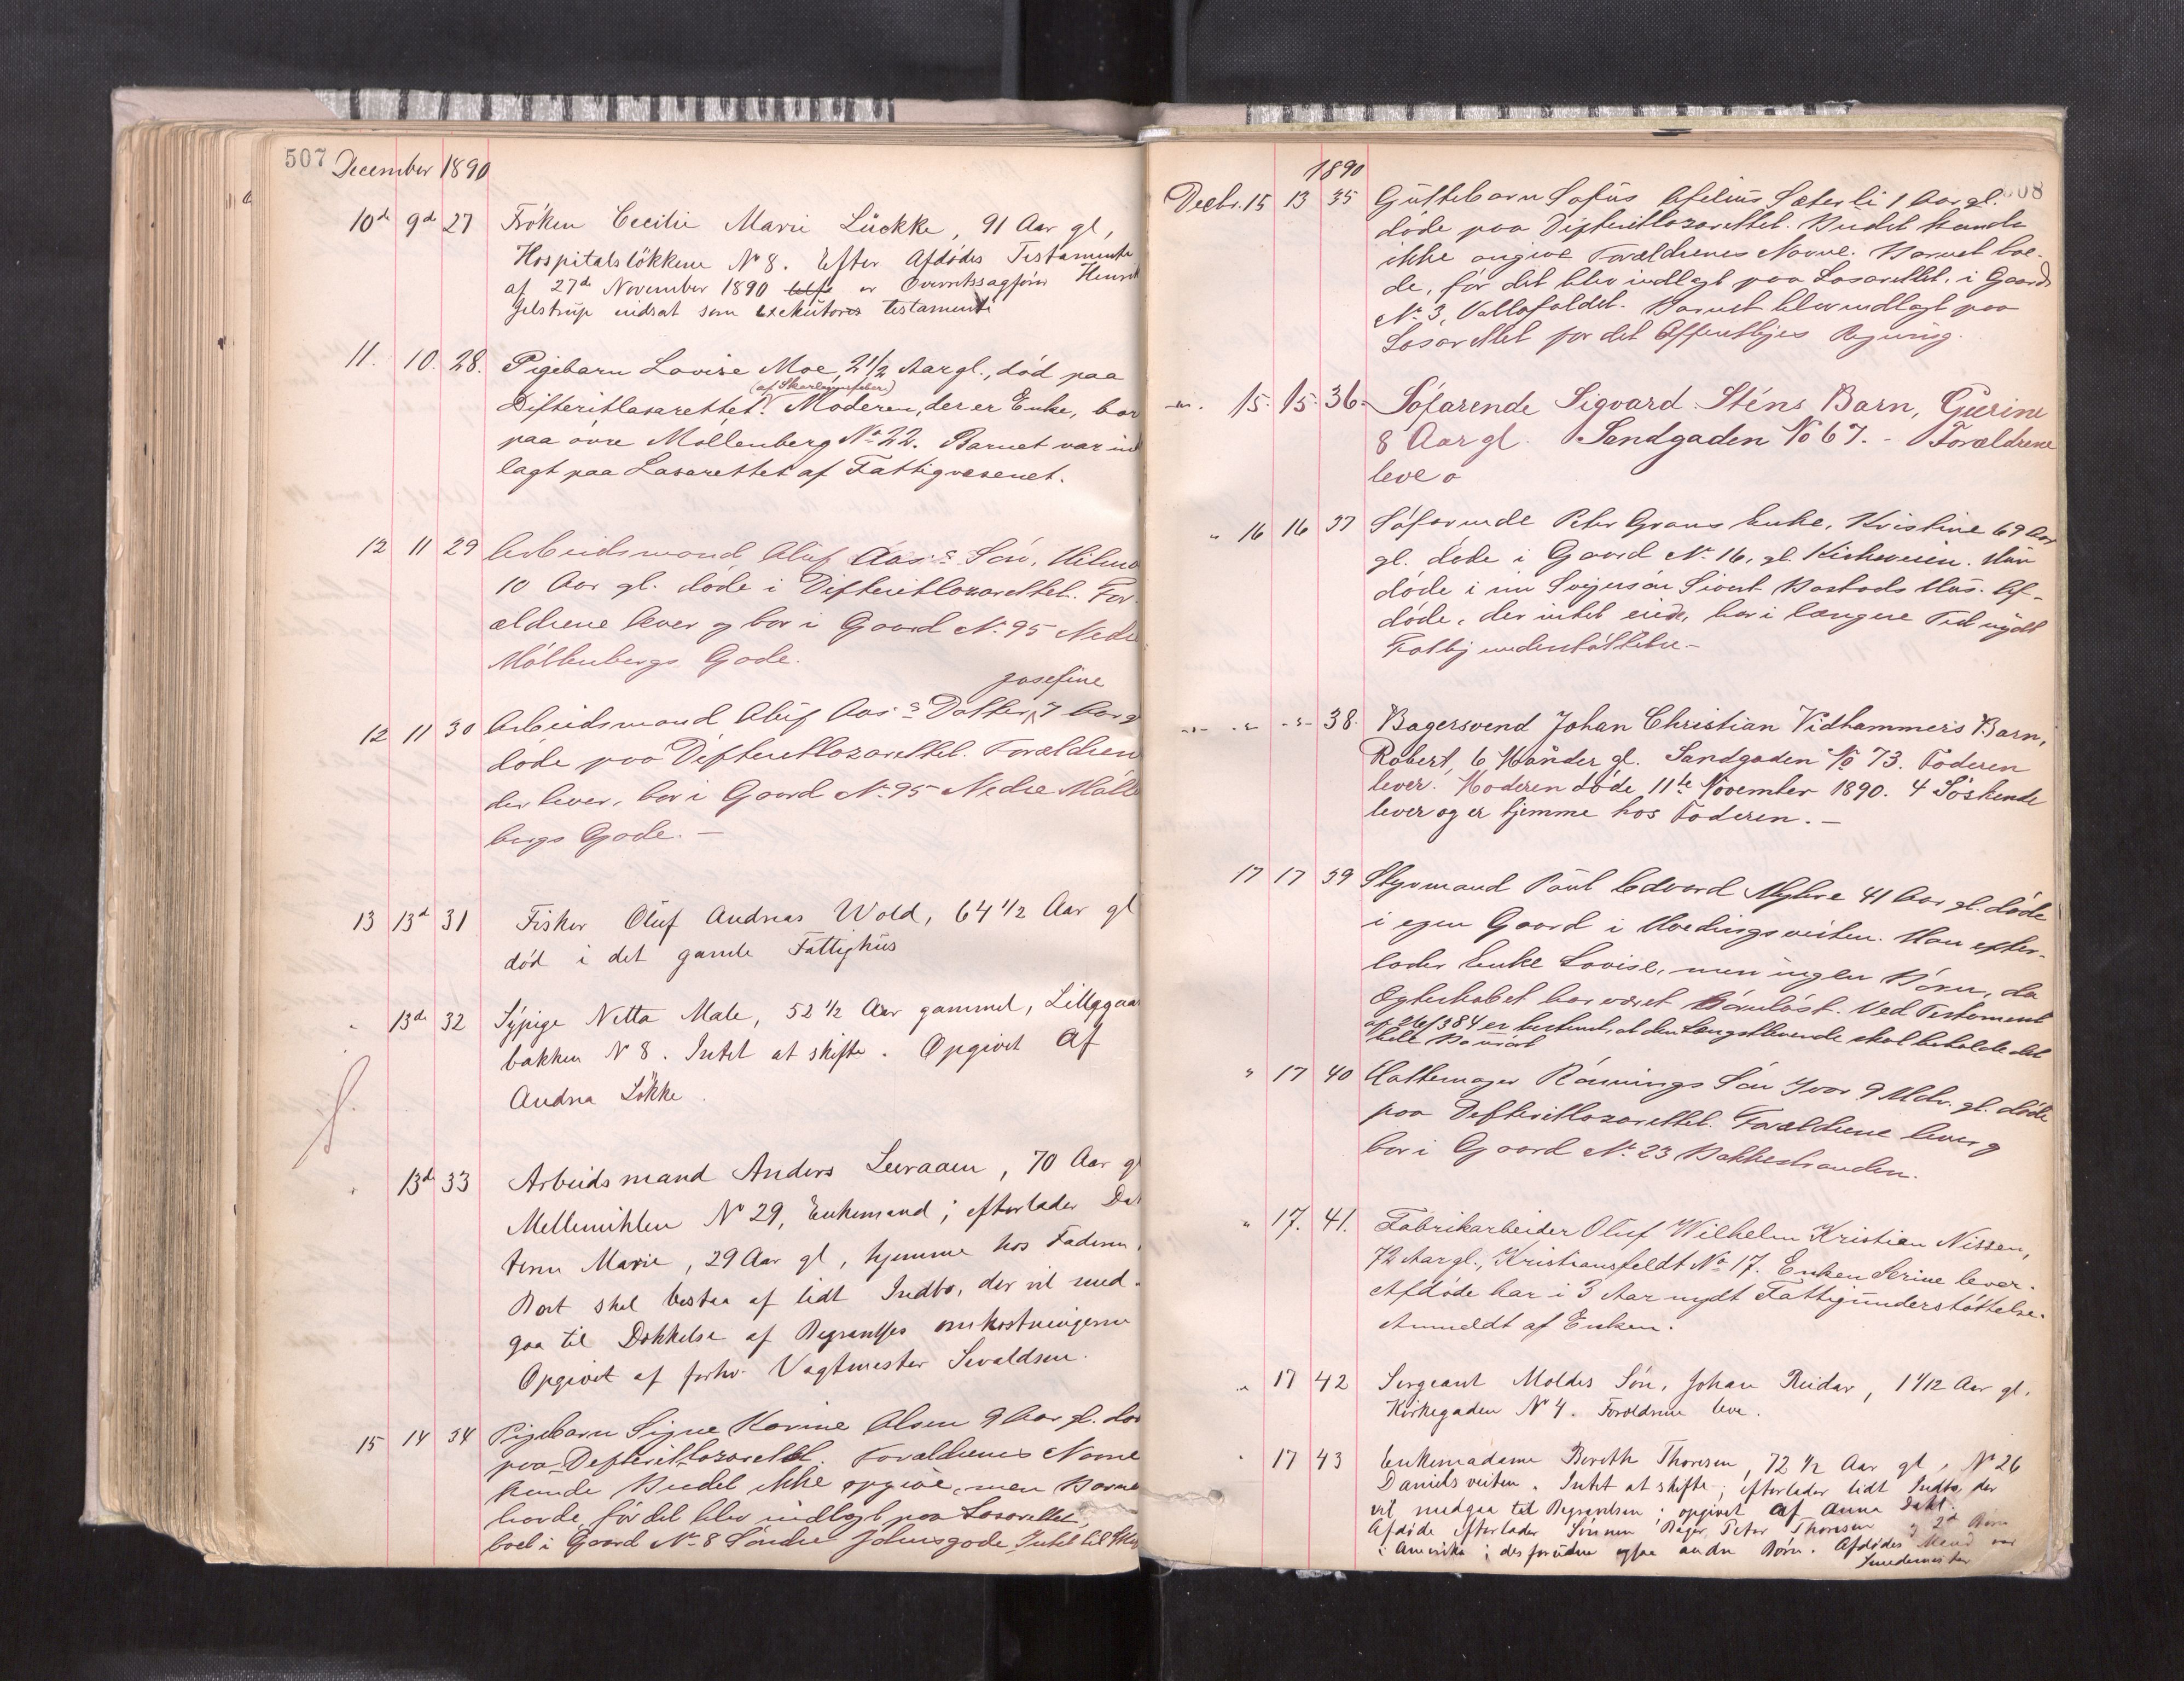 507 December 1890
10de 9de 27 Fröken Cecilie Marie Lückke, 91 Aar gl,
Hospitalslökkene No 8. Efter Afdödes Testamente
af 27de November 1890 er Overretssagförer Henrik
Jelstrup indsat som exekutores testamenti
11. 10. 28. Pigebarn Lovise Moe, 2 1/2 Aar gl., död paa
(af Skarlagensfeber)
Difteritlasarettet. Moderen, der er Enke, bor
paa övre Möllenberg No 22. Barnet var ind
lagt paa Lasarettet af Fattigvæsenet.
12 11 29 Arbeidsmand Oluf Aas's Sön, Hilmar
10 Aar gl. döde i Difteritlazarettet. For-
ældrene lever og bor i Gaard No. 95 Nedre
Möllenbergs Gade.
Josefine
12 11 30 Arbeidsmand Oluf Aas's Datter, 7 Aar g
döde paa Difteritlazarettet. Forældren
der lever, bor i Gaard No. 95 Nedre Mölle
bergs Gade. —
13 13de 31 Fisker Oluf Andreas Wold, 64 1/2 Aar gl
död i det gamle Fattighus
" 13de 32 Sypige Netta Male, 52 1/2 Aar gammel, Lillegaar
bakken No 8. Intet at skifte. Opgivet af
Andrea Lökke.
" 13de 33 Arbeidsmand Anders Leeraaen, 70 Aar g
Mellemihlen No 29, Enkemand; efterlader Dat
teren Marie, 29 Aar gl, hjemme hos Faderen,
Boet skal bestaa af lidt Indbo, der vil med-
gaa til Dækkelse af Begravelses omkostningerne
Opgivet af forhv. Vagtmester Sivaldsen.
15 14 34 Pigebarn Signe Karine Olsen 9 Aar gl. död
paa Difteritlazarettet. Forældrenes Navne
kunde Budet ikke opgive, men Barnet
havde, för det blev indlagt paa Lasarettet,
boet i Gaard No. 8 Söndre Johnsgade. Intet til Skif
1890
508
Decbr. 15 13 35 Guttebarn Sofus Ofelius Sæterli 1 Aar gl.
döde paa Difteritlazarettet. Budet kunde
ikke angive Forældrenes Navne. Barnet boe-
de, för det blev indlagt paa Lasarettet, i Gaard
No. 3, Vollafaldet. Barnet blev indlagt paa
Lasarettet for det Offentliges Regning.
-"- 15. 15. 36. Söfarende Sigvard Sténs Barn, Gurine
8 Aar gl. Sandgaden No 67. - Forældrene
leve
" 16 16 37 Söfarende Peter Grans Enke, Kristine 69 Aar
gl. döde i Gaard No. 16, gl. Kirkeveien. Hun
döde i sin Svigersön Sivert Bostads Hus. Af-
döde, der intet eiede, har i længere Tid nydt
Fattigunderstöttelse. —
-"- -"- -"- 38. Bagersvend Johan Christian Vidhammers Barn,
Robert, 6 Maander gl. Sandgaden No 73. Faderen
lever. Moderen döde 11te November 1890. 4 Söskende
lever og er hjemme hos Faderen. —
17 17 39 Styrmand Paul Edvard Myhre 41 Aar gl. döde
i egen Gaard i Hvedingsveiten. Han efter-
lader Enke Lovise, men ingen Börn, da
Ægteskabet har været barnlöst. Ved Testament
er bestemt, at den Længstlevende skal beholde det
hele Bo
" 17 40 Hattemager Rönnings Sön Ivar 9 Mdr. gl. döde
paa Difteritlazarettet. Forældrene lever og
bor i Gaard No. 23 Bakkestranden.
" 17. 41. Fabrikarbeider Oluf Wilhelm Kristian Nissen,
72 Aar gl., Kristiansfeldt No. 17. Enken Serine lever.
Afdöde har i 3 Aar nydt Fattigunderstöttelse.
Anmeldt af Enken.
" 17 42 Sergeant Moldes Sön, Johan Reidar, 1 1/12 Aar gl,
Kirkegaden No 4. Forældrene leve.
" 17 43 Enkemadame Bereth Thoresen, 72 1/2 Aar gl, No 26
Danielsveiten. Intet at skifte; efterlader lidt Indbo, der
vil medgaa til Begravelsen; opgivet af Anna Dahl.
Afdöde efterlader Sönnen Bager Peter Thoresen og 2de Börn
i Amerika; desforuden ogsaa andre Börn. Afdödes Mand var
Smedemester